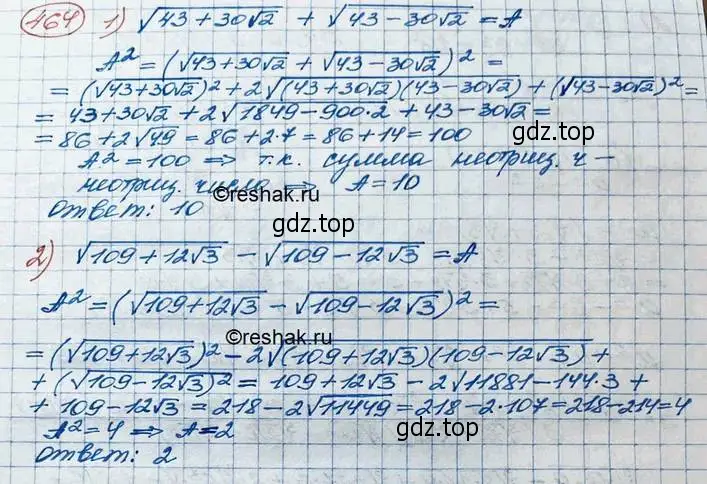 464 1) √43+30√2 + √43-30√2 = A
A² = (√43+30√2 + √43-30√2)² =
= (√43+30√2)² + 2√(43+30√2)(43-30√2) + (√43-30√2)² =
= 43+30√2 + 2√1849-900·2 + 43-30√2 =
= 86+2√49 = 86+2·7 = 86+14 = 100
A² = 100 ⇒ т.к. сумма неотриц. ч-
неотриц. число ⇒ A = 10
©reshak.ru
Ответ: 10
gdz.top
2) √109+12√3 - √109-12√3 = A
A² = (√109+12√3 - √109-12√3)² =
©reshak.ru
= (√109+12√3)² - 2√(109+12√3)(109-12√3) +
+ (√109-12√3)² = 109+12√3 - 2√11881-144·3 +
+ 109-12√3 = 218-2√11449 = 218-2·107 = 218-214 = 4
A² = 4 ⇒ A = 2
Ответ: 2
gdz.top
gdz.top
gdz.top